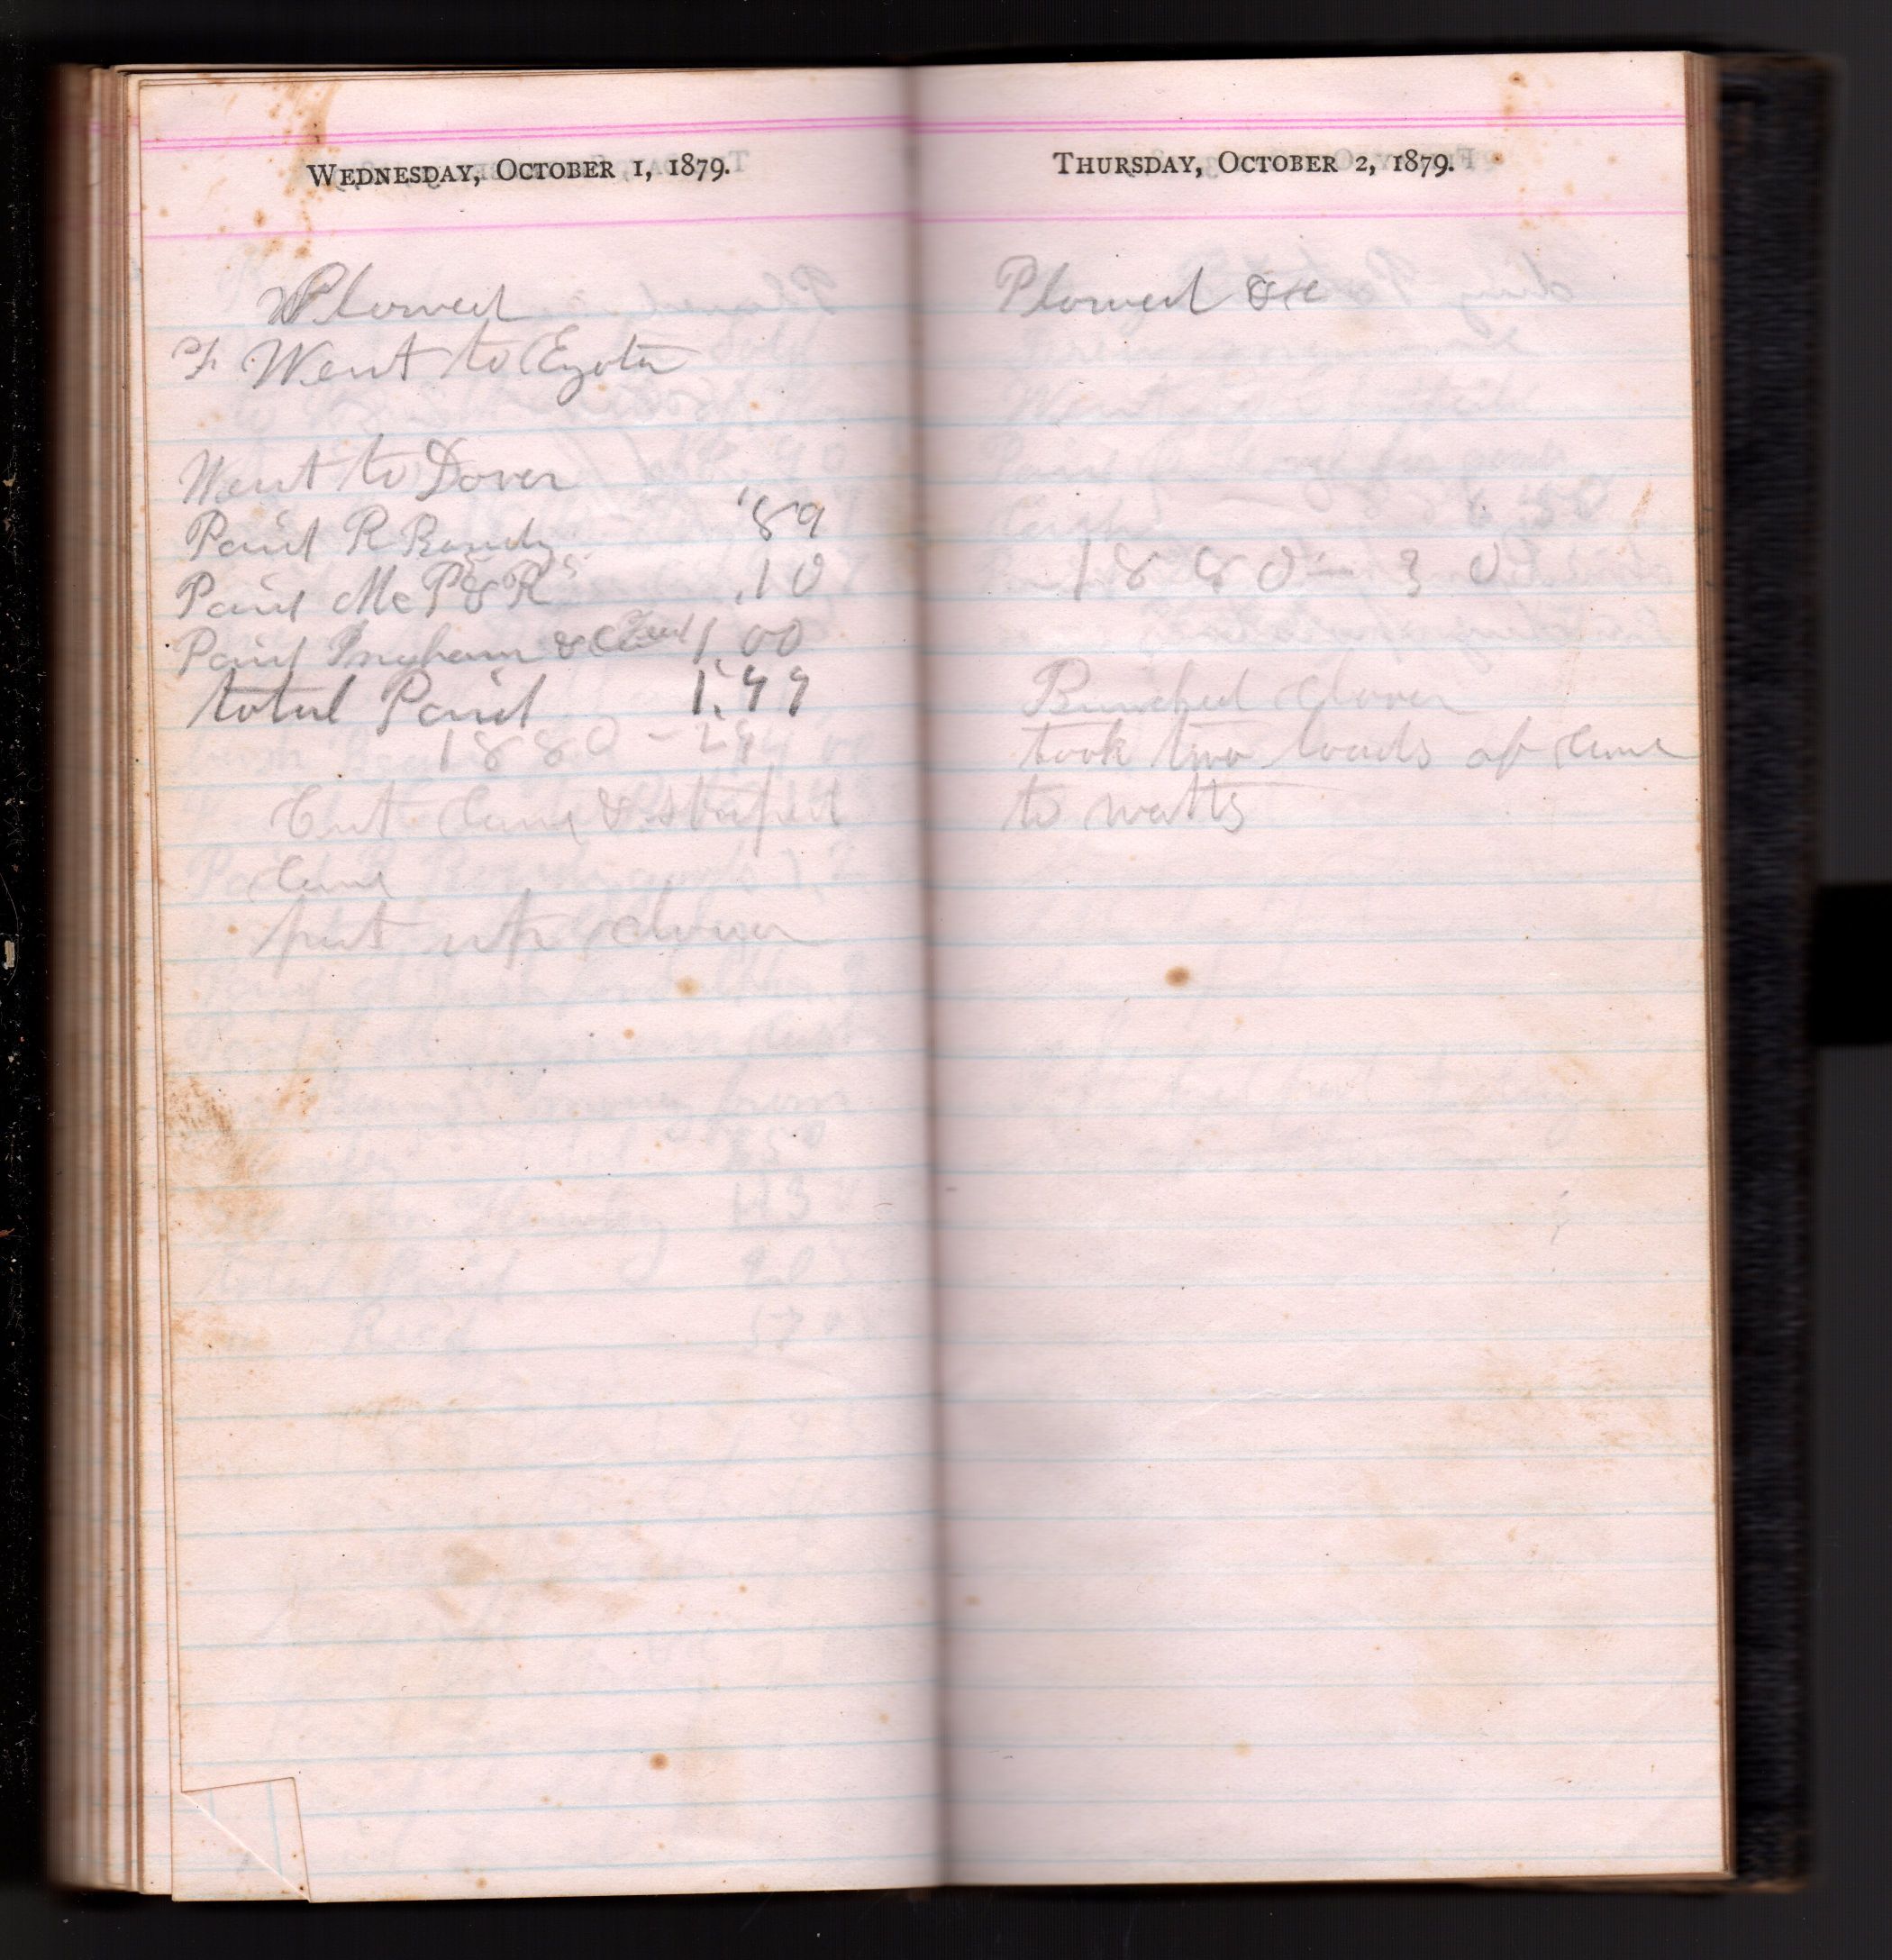 WEDNESDAY, OCTOBER 1, 1879.
Plowed
Went to Eyota
Went to Dover
Paid R Bandy .89
Paid Mc P & R .10
Paid Ingham & 1 00
total Paid 1.99
1880 - 29
Cut Cane & striped
Cane
put up clover
THURSDAY, OCTOBER 2, 1879.
Plowed &c
1880 - 30
Bunched clover
took two loads of Cane
to watts